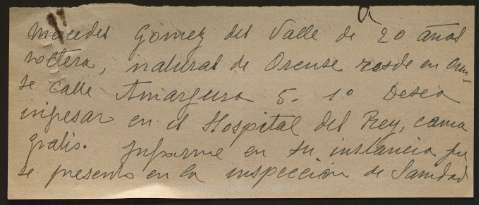 Mercedes Gomez del Valle de 20 años
soltera, natural de Orense reside en Oren-
se calle Amargura 5. 1º Desea
ingresar en el Hospital del Rey, cama
gratis. Informe en su instancia que
se presentó en la inspección de Sanidad